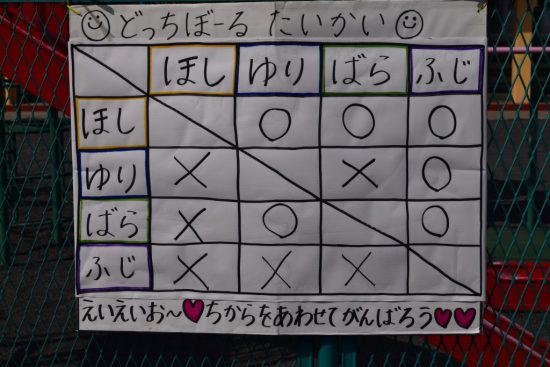 ☺どっちぼーる たいかい☺
ほし ゆり ばら ふじ
ほし ○ ○ ○
ゆり × × ○
ばら × ○ ○
ふじ × × ×
えいえいお〜♥ちからをあわせてがんばろう♥♥